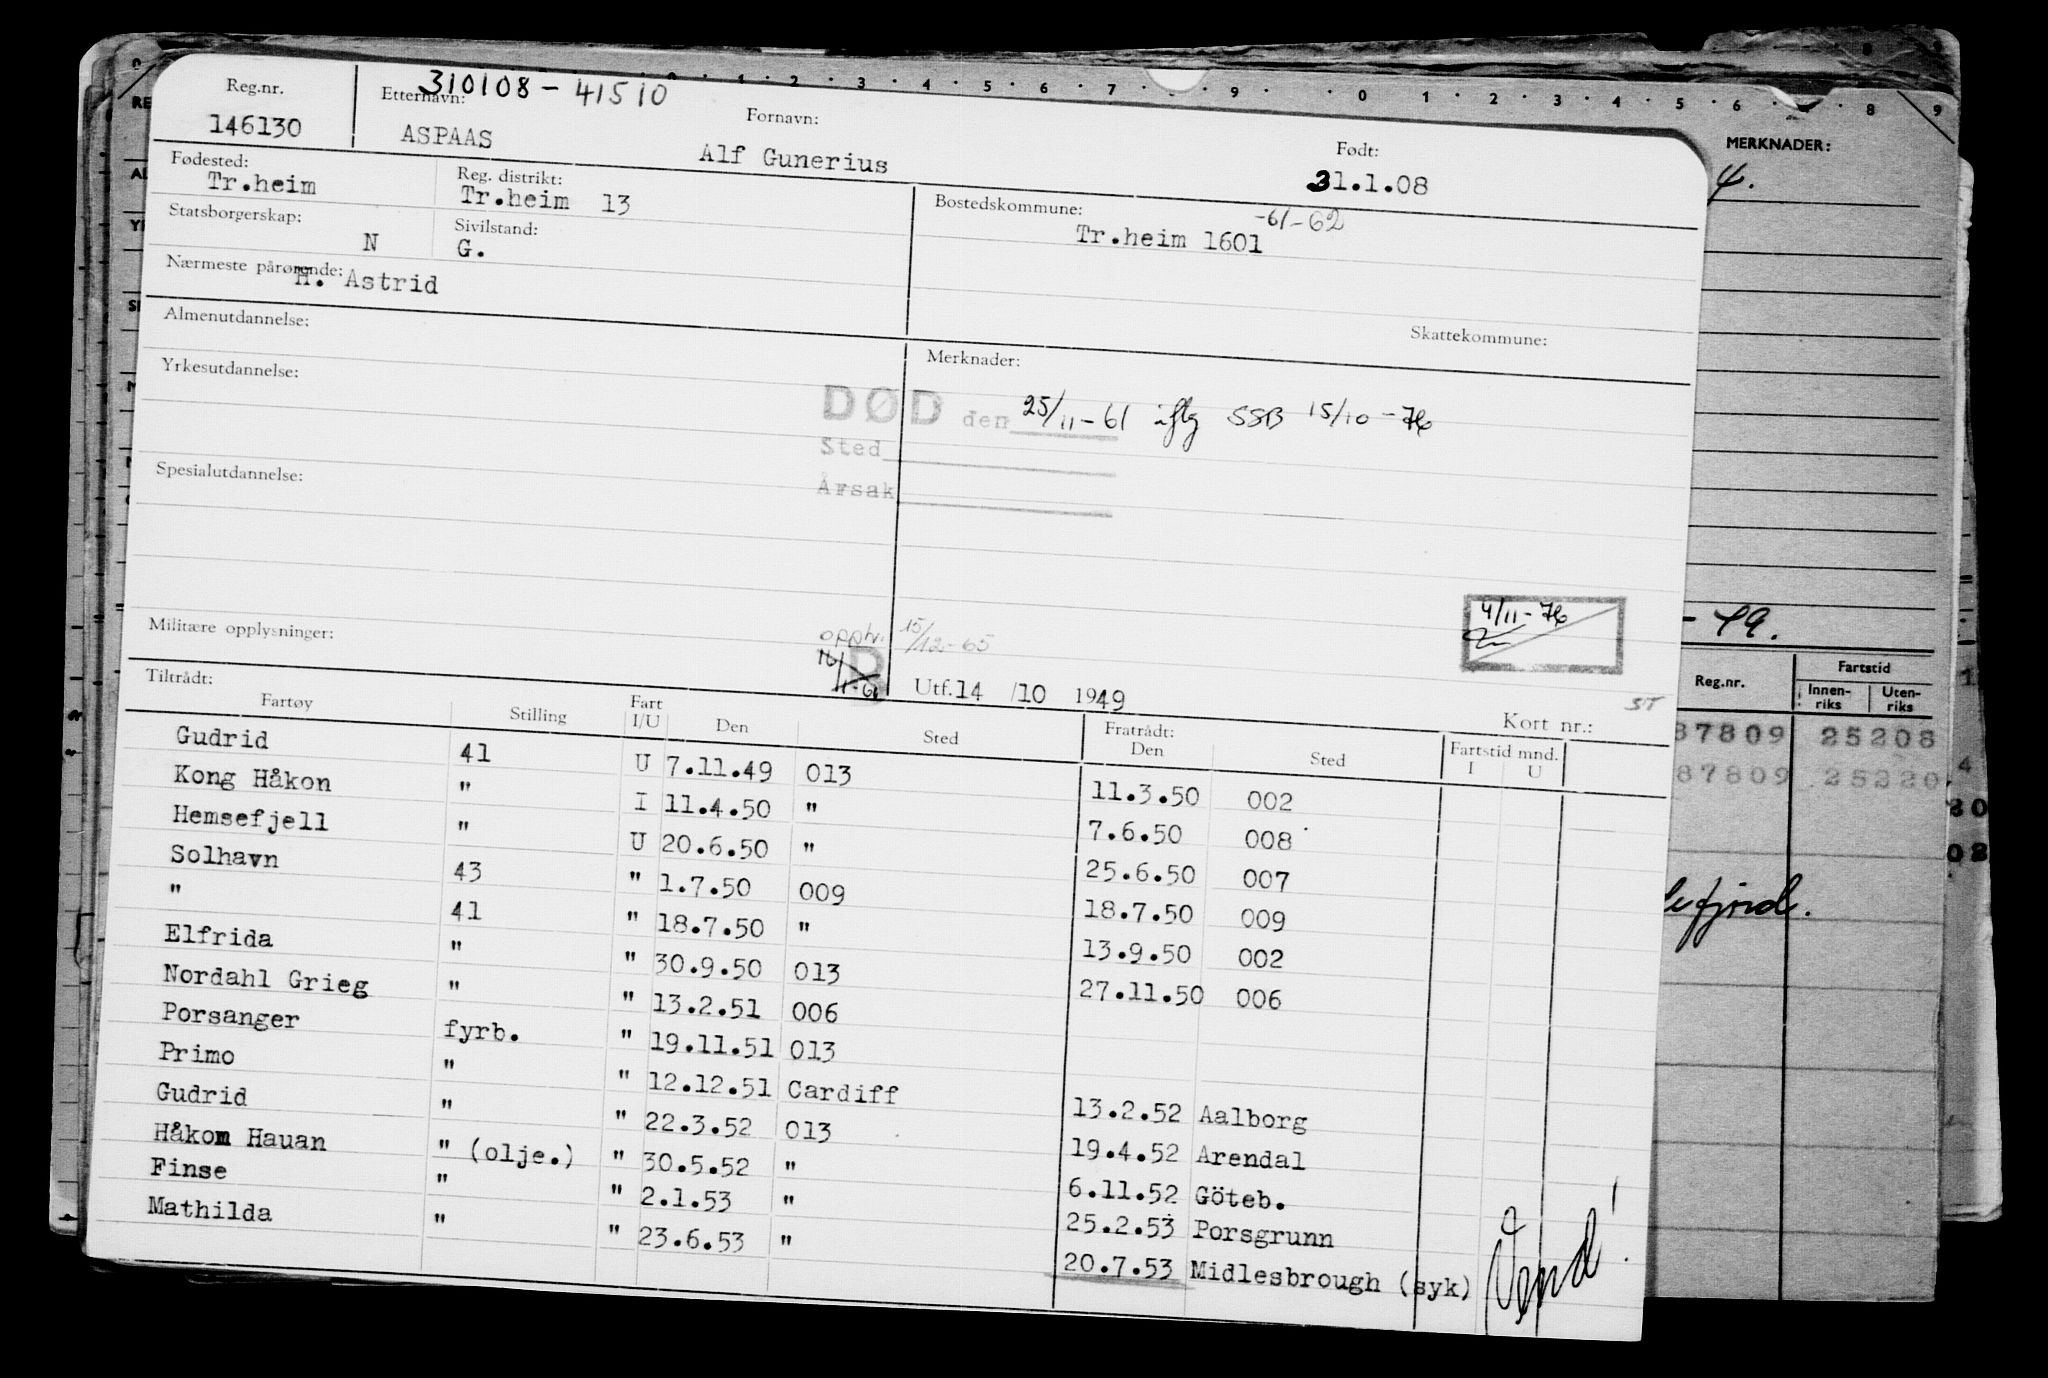 Reg.nr. 310108 - 41510
146130 Etternavn: ASPAAS Fornavn: Alf Gunerius Født: 31.1.08
Fødested: Tr.heim Reg. distrikt: Tr.heim 13 Bostedskommune: Tr.heim 1601 -61-62
Statsborgerskap: N Sivilstand: G.
Nærmeste pårørende: H. Astrid
Almenutdannelse: Skattekommune:
Yrkesutdannelse: Merknader:
DØD den 25/11-61 iflg SSB 15/10-76
Sted
Årsak
Spesialutdannelse:
4/11-76
Militære opplysninger: 15/12-65
Utf. 14 /10 1949 Kort nr.:
Tiltrådt: Fratrådt:
Fartøy Stilling Fart I/U Den Sted Den Sted Fartstid mnd. I U
Gudrid 41 U 7.11.49 013 11.3.50 002
Kong Håkon " I 11.4.50 " 7.6.50 008
Hemsefjell " U 20.6.50 " 25.6.50 007
Solhavn 43 " 1.7.50 009 18.7.50 009
" 41 " 18.7.50 " 13.9.50 002
Elfrida " " 30.9.50 013 27.11.50 006
Nordahl Grieg " " 13.2.51 006
Porsanger fyrb. " 19.11.51 013
Primo " " 12.12.51 Cardiff 13.2.52 Aalborg
Gudrid " " 22.3.52 013 19.4.52 Arendal
Håkon Hauan " (olje.) " 30.5.52 " 6.11.52 Göteb.
Finse " " 2.1.53 " 25.2.53 Porsgrunn
Mathilda " " 23.6.53 " 20.7.53 Midlesbrough (syk)
Vend!
MERKNADER:
4.
- 49.
Reg.nr. Fartstid
Innenriks Utenriks
87809 25208
87809 25220